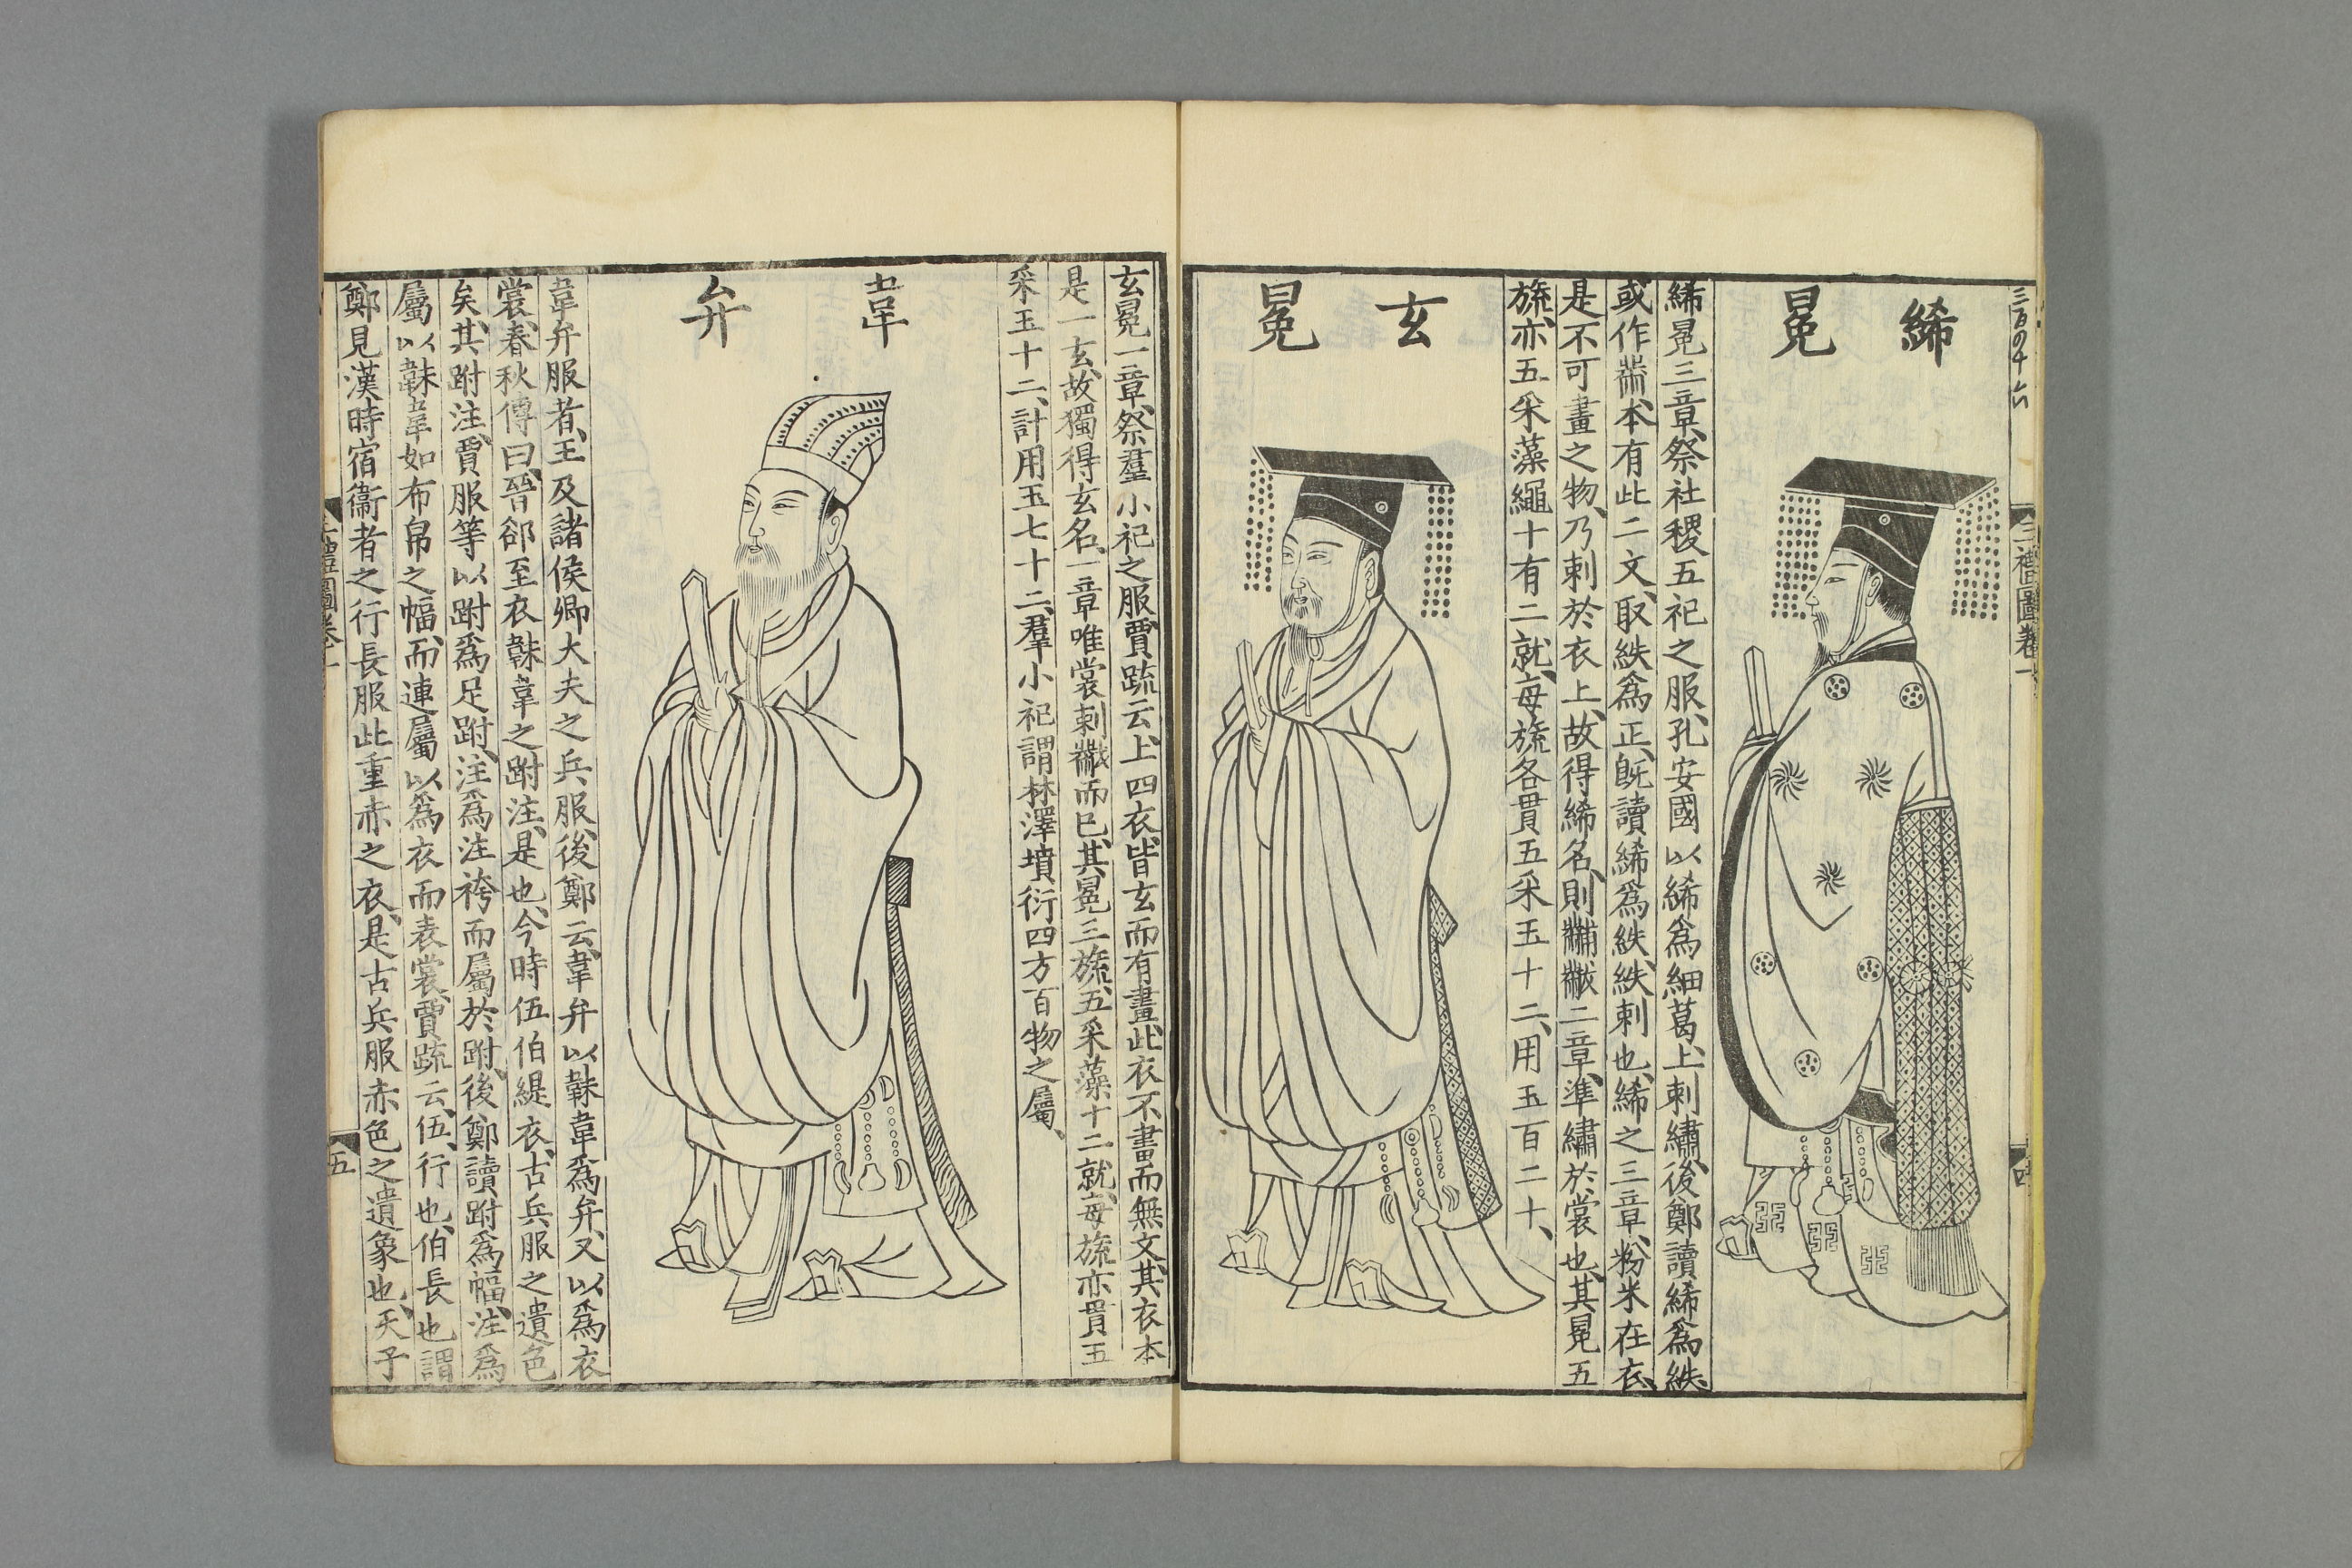 三禮圖卷一
四
絺冕
絺冕三章、祭社稷五祀之服、孔安國以絺爲細葛、上刺繡、後鄭讀絺爲紩、
或作黹、本有此二文、取紩爲正、旣讀絺爲紩、紩刺也、絺之三章、粉米在衣、
是不可畫之物、乃刺於衣上、故得絺名、則黼黻二章、準繡於裳也、其冕五
旒、亦五采藻繩十有二就、每旒各貫五采玉十二、用玉百二十、
玄冕
玄冕一章、祭羣小祀之服、賈疏云、上四衣、皆玄而有畫、此衣不畫而無文、其衣本
是一玄、故獨得玄名、一章唯裳刺黻而已、其冕三旒、五采藻十二就、每旒亦貫五
采玉十二、計用玉七十二、羣小祀謂林澤墳衍四方百物之屬、
韋弁
韋弁服者、王及諸侯卿大夫之兵服、後鄭云、韋弁以韎韋爲弁、又以爲衣
裳、春秋傳曰、晉郤至衣韎韋之跗注、是也、今時伍伯緹衣、古兵服之遺色
矣、其跗注、賈服等以跗爲足跗、注爲注袴而屬於跗、後鄭讀跗爲幅、注爲
屬、以韎韋如布帛之幅、而連屬以爲衣而表裳、賈疏云、伍、行也、伯長也謂
鄭見漢時宿衞者之行長服此重赤之衣、是古兵服赤色之遺象也、天子
三禮圖卷一
五